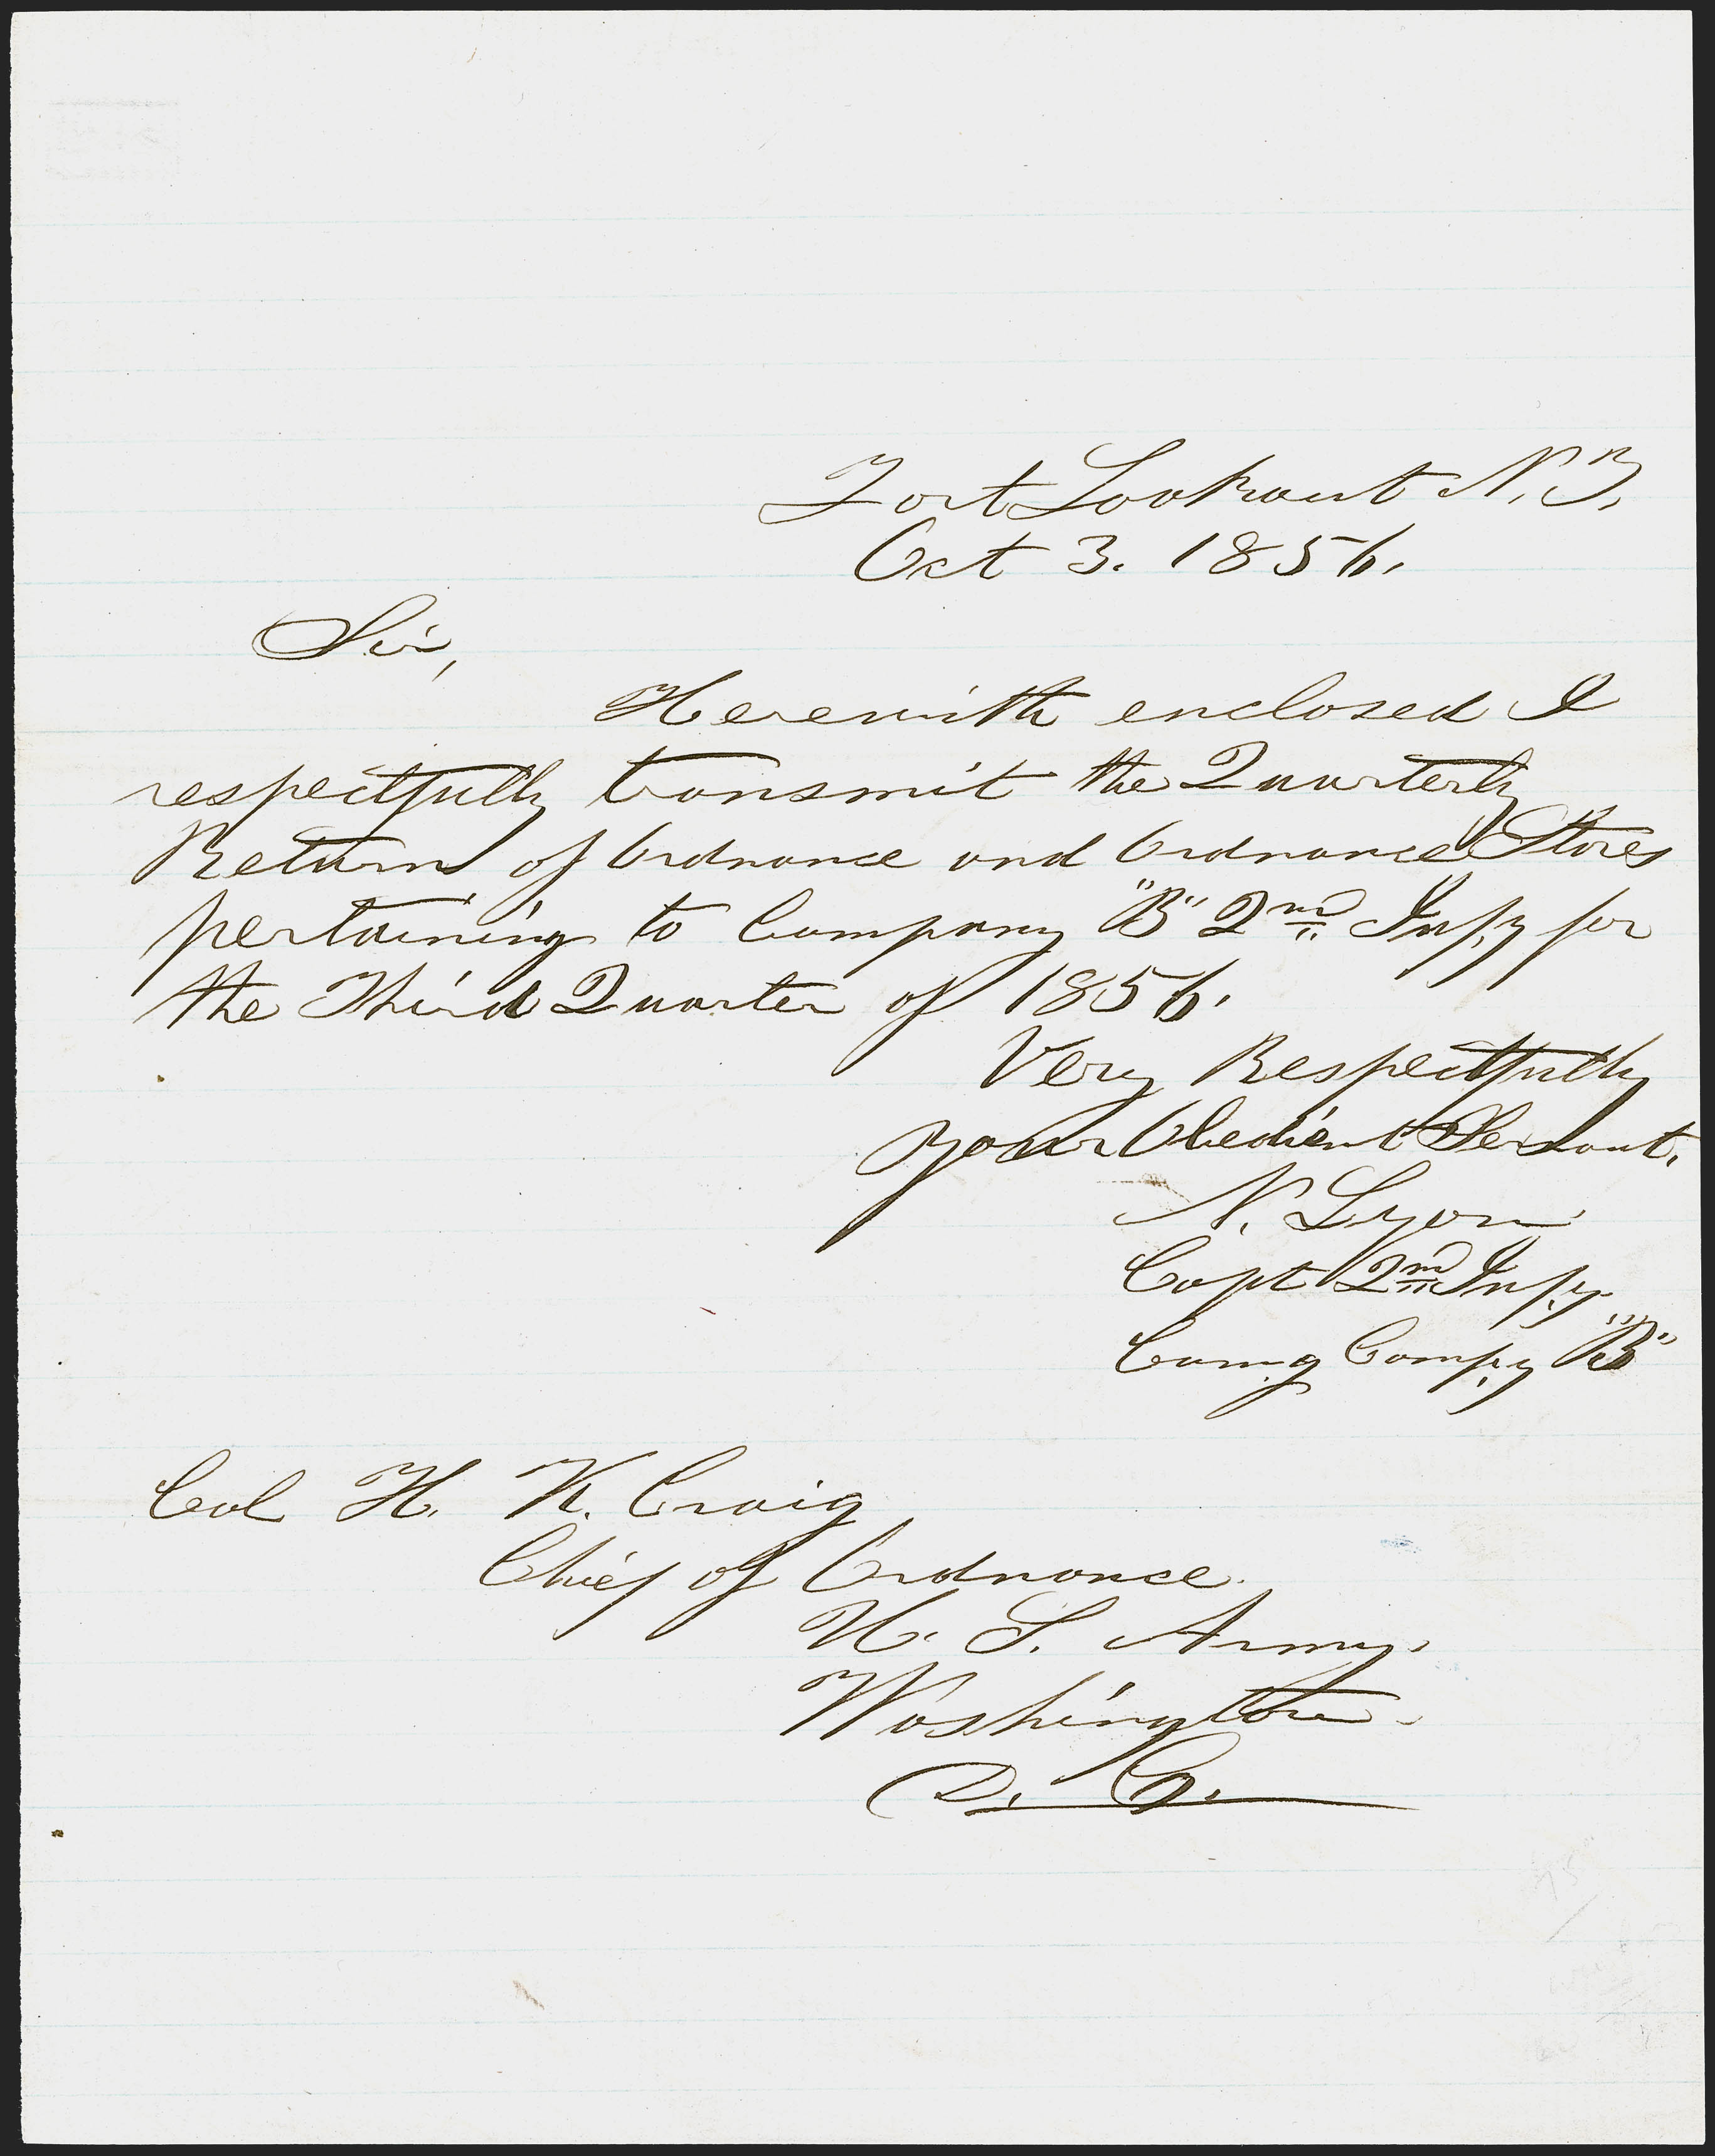 Fort Lookout N.T.
Oct 3. 1856.
Sir,
Herewith enclosed I
respectfully transmit the Quarterly
Return of Ordnance and Ordnance Stores
pertaining to Company "B" 2nd Inf,y for
the Third Quarter of 1856.
Very Respectfully
your Obedient Servant.
N. Lyon
Capt 2nd Inf,y.
Com,g Comp,y "B"
Col H. K. Craig
Chief of Ordnance.
U. S. Army.
Washington.
D. C.
75